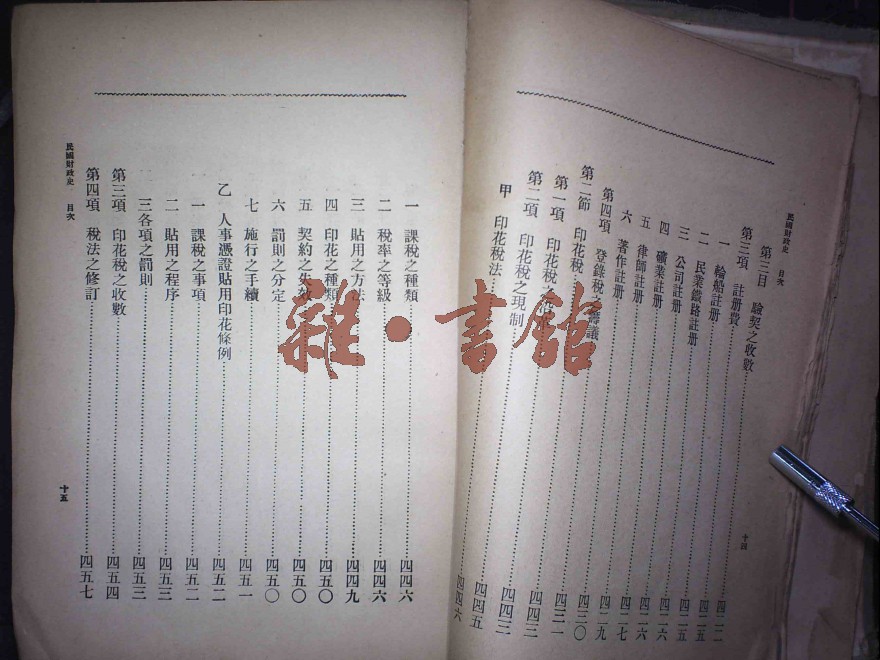 民國財政史 目次
第三目 驗契之收數 四二二
第三項 註册費 四二五
一 輪船註册 四二五
二 民業鐵路註册 四二六
三 公司註册 四二六
四 礦業註册 四二七
五 律師註册 四二九
六 著作註册 四三〇
第四項 登錄稅之籌議 四三一
第二節 印花稅 四四三
第一項 印花稅之 四四三
第二項 印花稅之現制 四四五
甲 印花稅法 四四六
十四
一 課稅之種類 四四六
二 稅率之等級 四四六
三 貼用之方法 四四九
四 印花之種類 四五〇
五 契約之失效 四五〇
六 罰則之分定 四五〇
七 施行之手續 四五一
乙 人事憑證貼用印花條例 四五二
一 課稅之事項 四五二
二 貼用之程序 四五三
三各項之罰則 四五三
第三項 印花稅之收數 四五四
第四項 稅法之修訂 四五七
民國財政史 目次
十五
雜·書館